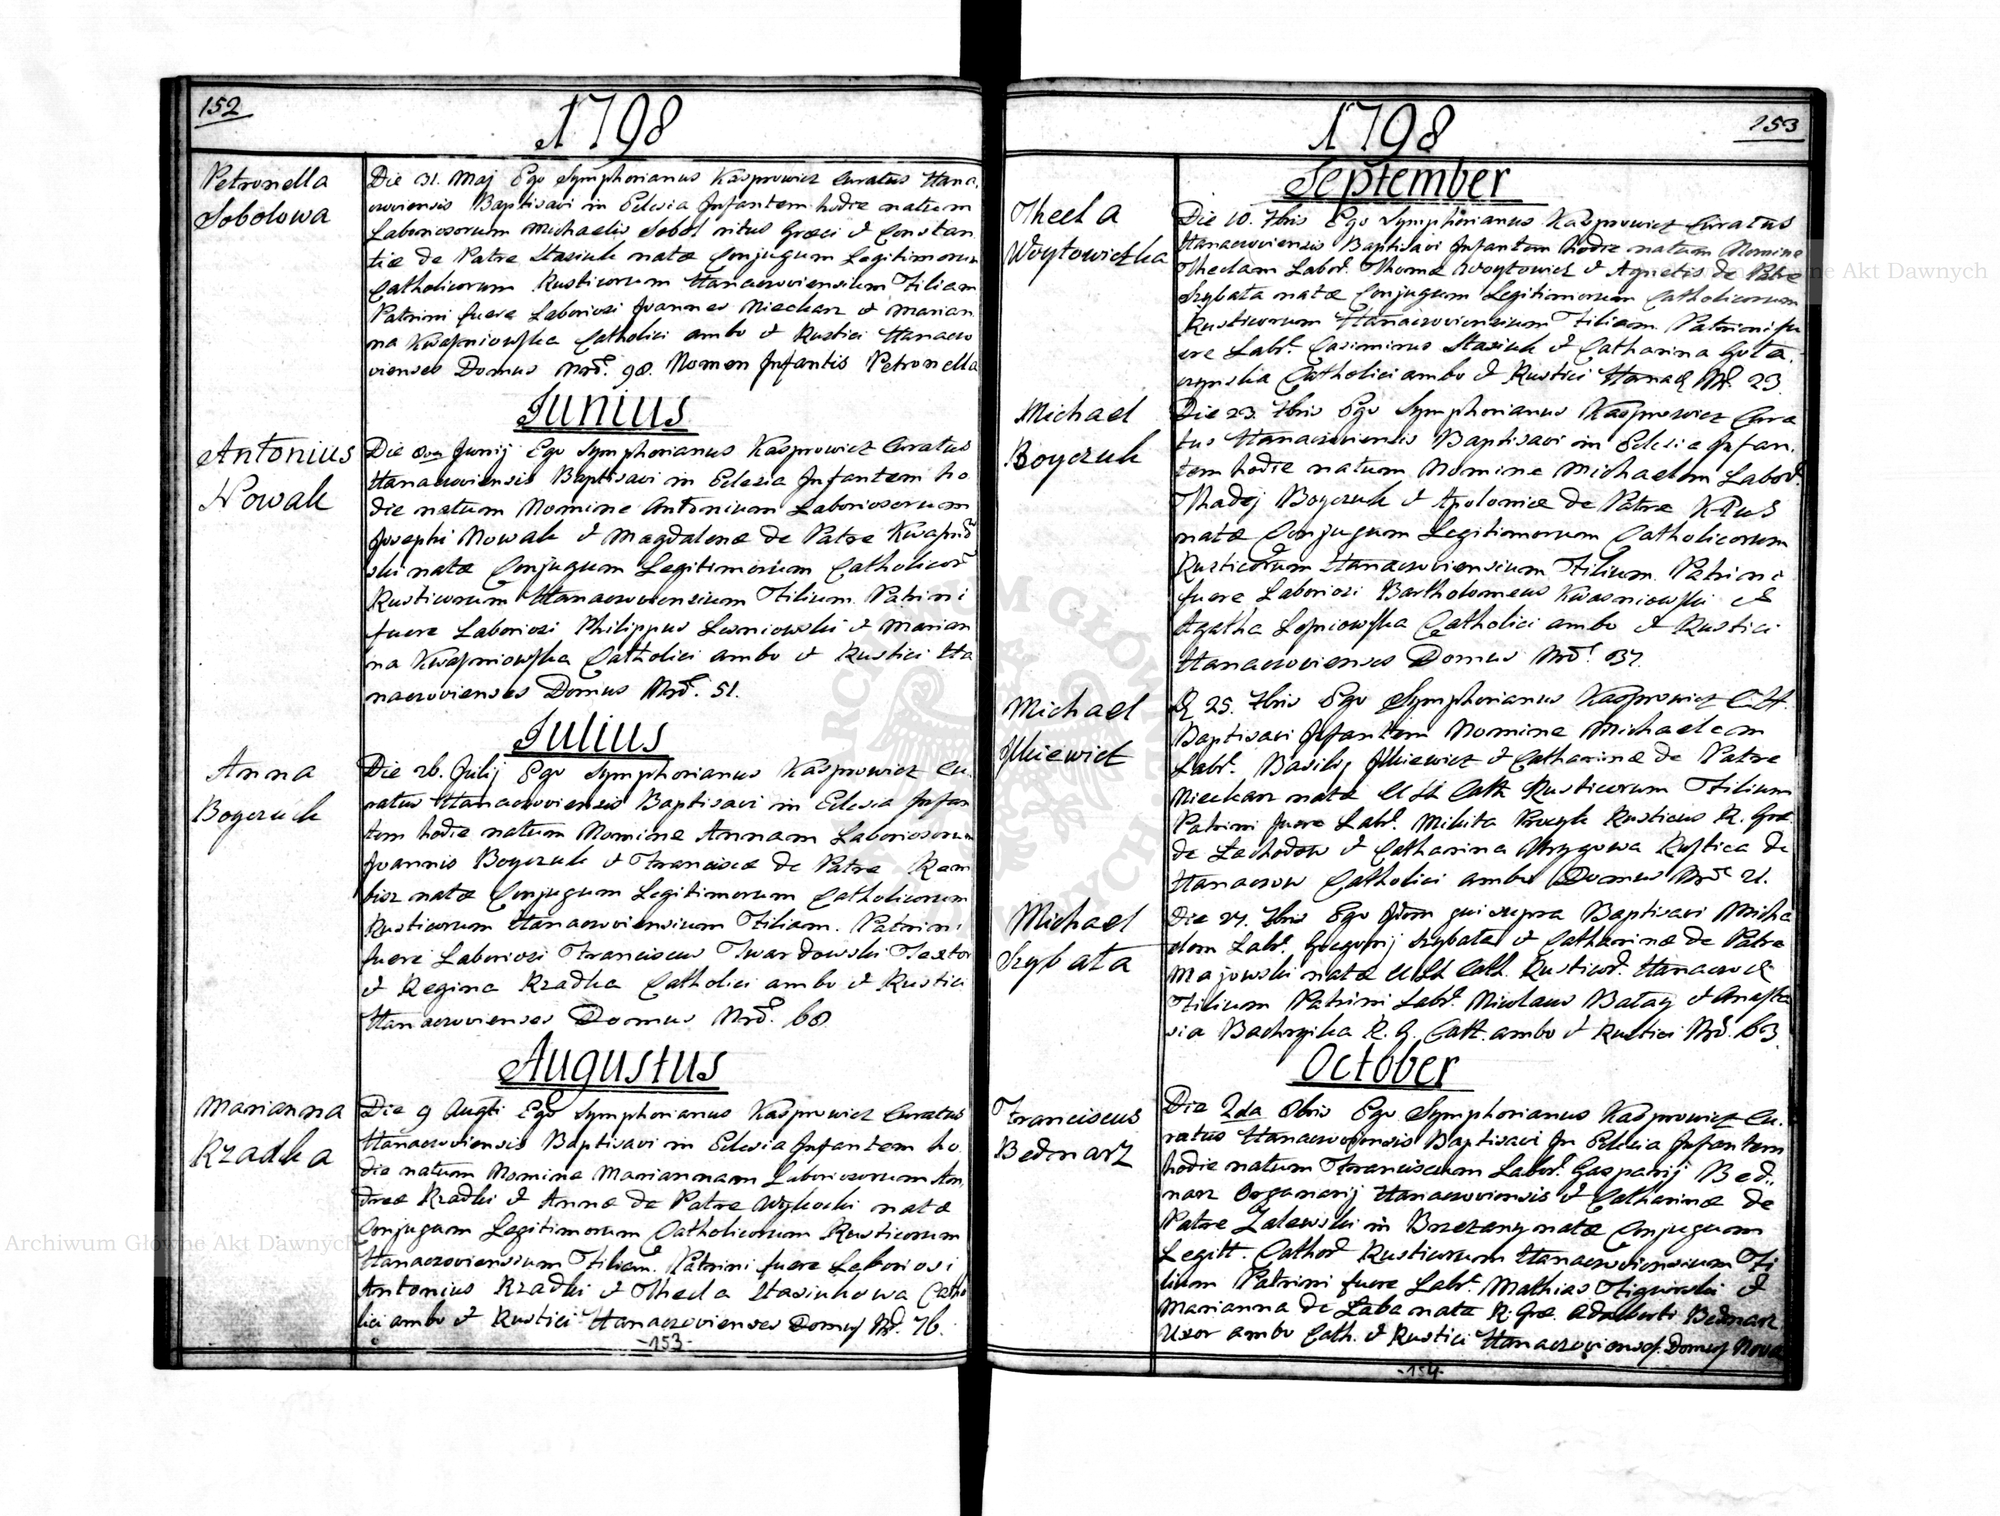 152
1798
Petronella
Sobolowa
Die 31. Maj Ego Symphorianus Kasprowicz Curatus Hana
czoviensis Baptisavi in Eclesia Infantem hodie natum
Laboriosorum Michaelis Sobol ritus Graeci et Constan
tiae de Patre Stasiuk natae Conjugum Legitimorum
Catholicorum Rusticorum Hanaczoviensium Filiam
Patrini fuere Laboriosi Joannes Mieckarz et Marian
na Kwasniowska Catholici ambo et Rustici Hanaczo
vienses Domus Nro. 98. Nomen Infantis Petronella
Junius
Antonius
Nowak
Die 8va Junij Ego Symphorianus Kasprowicz Curatus
Hanaczoviensis Baptisavi in Eclezia Infantem ho
die natum Nomine Antonium Laboriosorum
Josephi Nowak et Magdalenae de Patre Kwasnio
ski natae Conjugum Legitimorum Catholicor
Rusticorum Hanaczoviensium Filium Patrini
fuere Laboriosi Philippus Lesniowski et Marian
na Kwasniowska Catholici ambo et Rustici Ha
naczovienses Domus Nro. 51.
Julius
Anna
Boyczuk
Die 26. Julij Ego Symphorianus Kasprowicz Cu
ratus Hanaczoviensis Baptisavi in Eclesia Infan
tem hodie natum Nomine Annam Laboriosorum
Joannis Boyczuk et Franciscae de Patre Ram
bisz natae Conjugum Legitimorum Catholicorum
Rusticorum Hanaczoviensium Filiam. Patrini
fuere Laboriosi Franciscus Twardowski Textor
et Regina Rzadka Catholici ambo et Rustici
Hanaczovienses Domus Nro. 68
Augustus
Marianna
Rzadka
Die 9 Augti Ego Symphorianus Kasprowicz Curatus
Hanaczoviensis Baptisavi in Eclesia Infantem ho
die natum Nomine Mariannam Laboriosorum An
dreae Rzadki et Annae de Patre Wysocki natae
Conjugum Legitimorum Catholicorum Rusticorum
Hanaczoviensium Filiam. Patrini fuere Laboriosi
Antonius Rzadki et Thecla Stasiukowa Catho
lici ambo et Rustici Hanaczovienses Domus Nro. 76.
-153-
153
1798
September
Thecla
Woytowiczka
Die 10. 7bris Ego Symphorianus Kasprowicz Curatus
Hanaczoviensis Baptisavi Infantem hodie natum Nomine
Theclam Labor. Thomae Woytowicz et Agnetis de Patre
Szybata natae Conjugum Legitimorum Catholicorum
Rusticorum Hanaczoviensium Filiam. Patrini fu
ere Labr. Casimirus Stasiuk et Catharina Gola
czynska Catholici ambo et Rustici Hanacz Nr. 23
Michael
Boyczuk
Die 23. 7bris Ego Symphorianus Kasprowicz Cura
tus Hanaczoviensis Baptisavi in Eclesia Infan
tem hodie natum Nomine Michaelem Labor.
Thadej Boyczuk et Apoloniae de Patre Klus
natae Conjugum Legitimorum Catholicorum
Rusticorum Hanaczoviensium Filium. Patrini
fuere Laboriosi Bartholomeus Kwasniowski et
Agatha Lesniowska Catholici ambo et Rustici
Hanaczovienses Domus Nro. 37.
Michael
Ilkiewicz
D. 25. 7bris Ego Symphorianus Kasprowicz C.H.
Baptisavi Infantem Nomine Michaelem
Labr. Basilij Ilkiewicz et Catharinae de Patre
Mieckarz natae CLL Cath Rusticorum Filium
Patrini fuere Labr. Mikita Procyk Rusticus R. Grae
de Lachodow et Catharina Mrygowa Rustica de
Hanaczow Catholici ambo Domus Nro 21.
Michael
Szybata
Die 27. 7bris Ego Idem qui supra Baptisavi Micha
elem Labr. Gregorij Szybata et Catharinae de Patre
Majowski natae CLL Cath. Rusticor. Hanaczov
Filium Patrini Labr. Nicolaus Balag et Anasta
sia Bachryika R. G. Cath. ambo et Rustici Nro. 63
October
Franciscus
Bednarz
Die 2da 8bris Ego Symphorianus Kasprowicz Cu
ratus Hanaczoviensis Baptisavi In Eclesia Infantem
hodie natum Franciscum Labor. Gasparij Bed
narz Organarij Hanaczoviensis et Catharinae de
Patre Zalewski in Brzezany natae Conjugum
Legitt. Cathor Rusticorum Hanaczoviensium Fi
lium Patrini fuere Labr. Mathias Figurski et
Marianna de Laba nata R. Grae. Adalberti Bednarz
Uxor ambo Cath. et Rustici Hanaczovienses. Domus Nova
-154-
Archiwum Główne Akt Dawnych
Archiwum Główne Akt Dawnych
ARCHIWUM GŁÓWNE AKT DAWNYCH